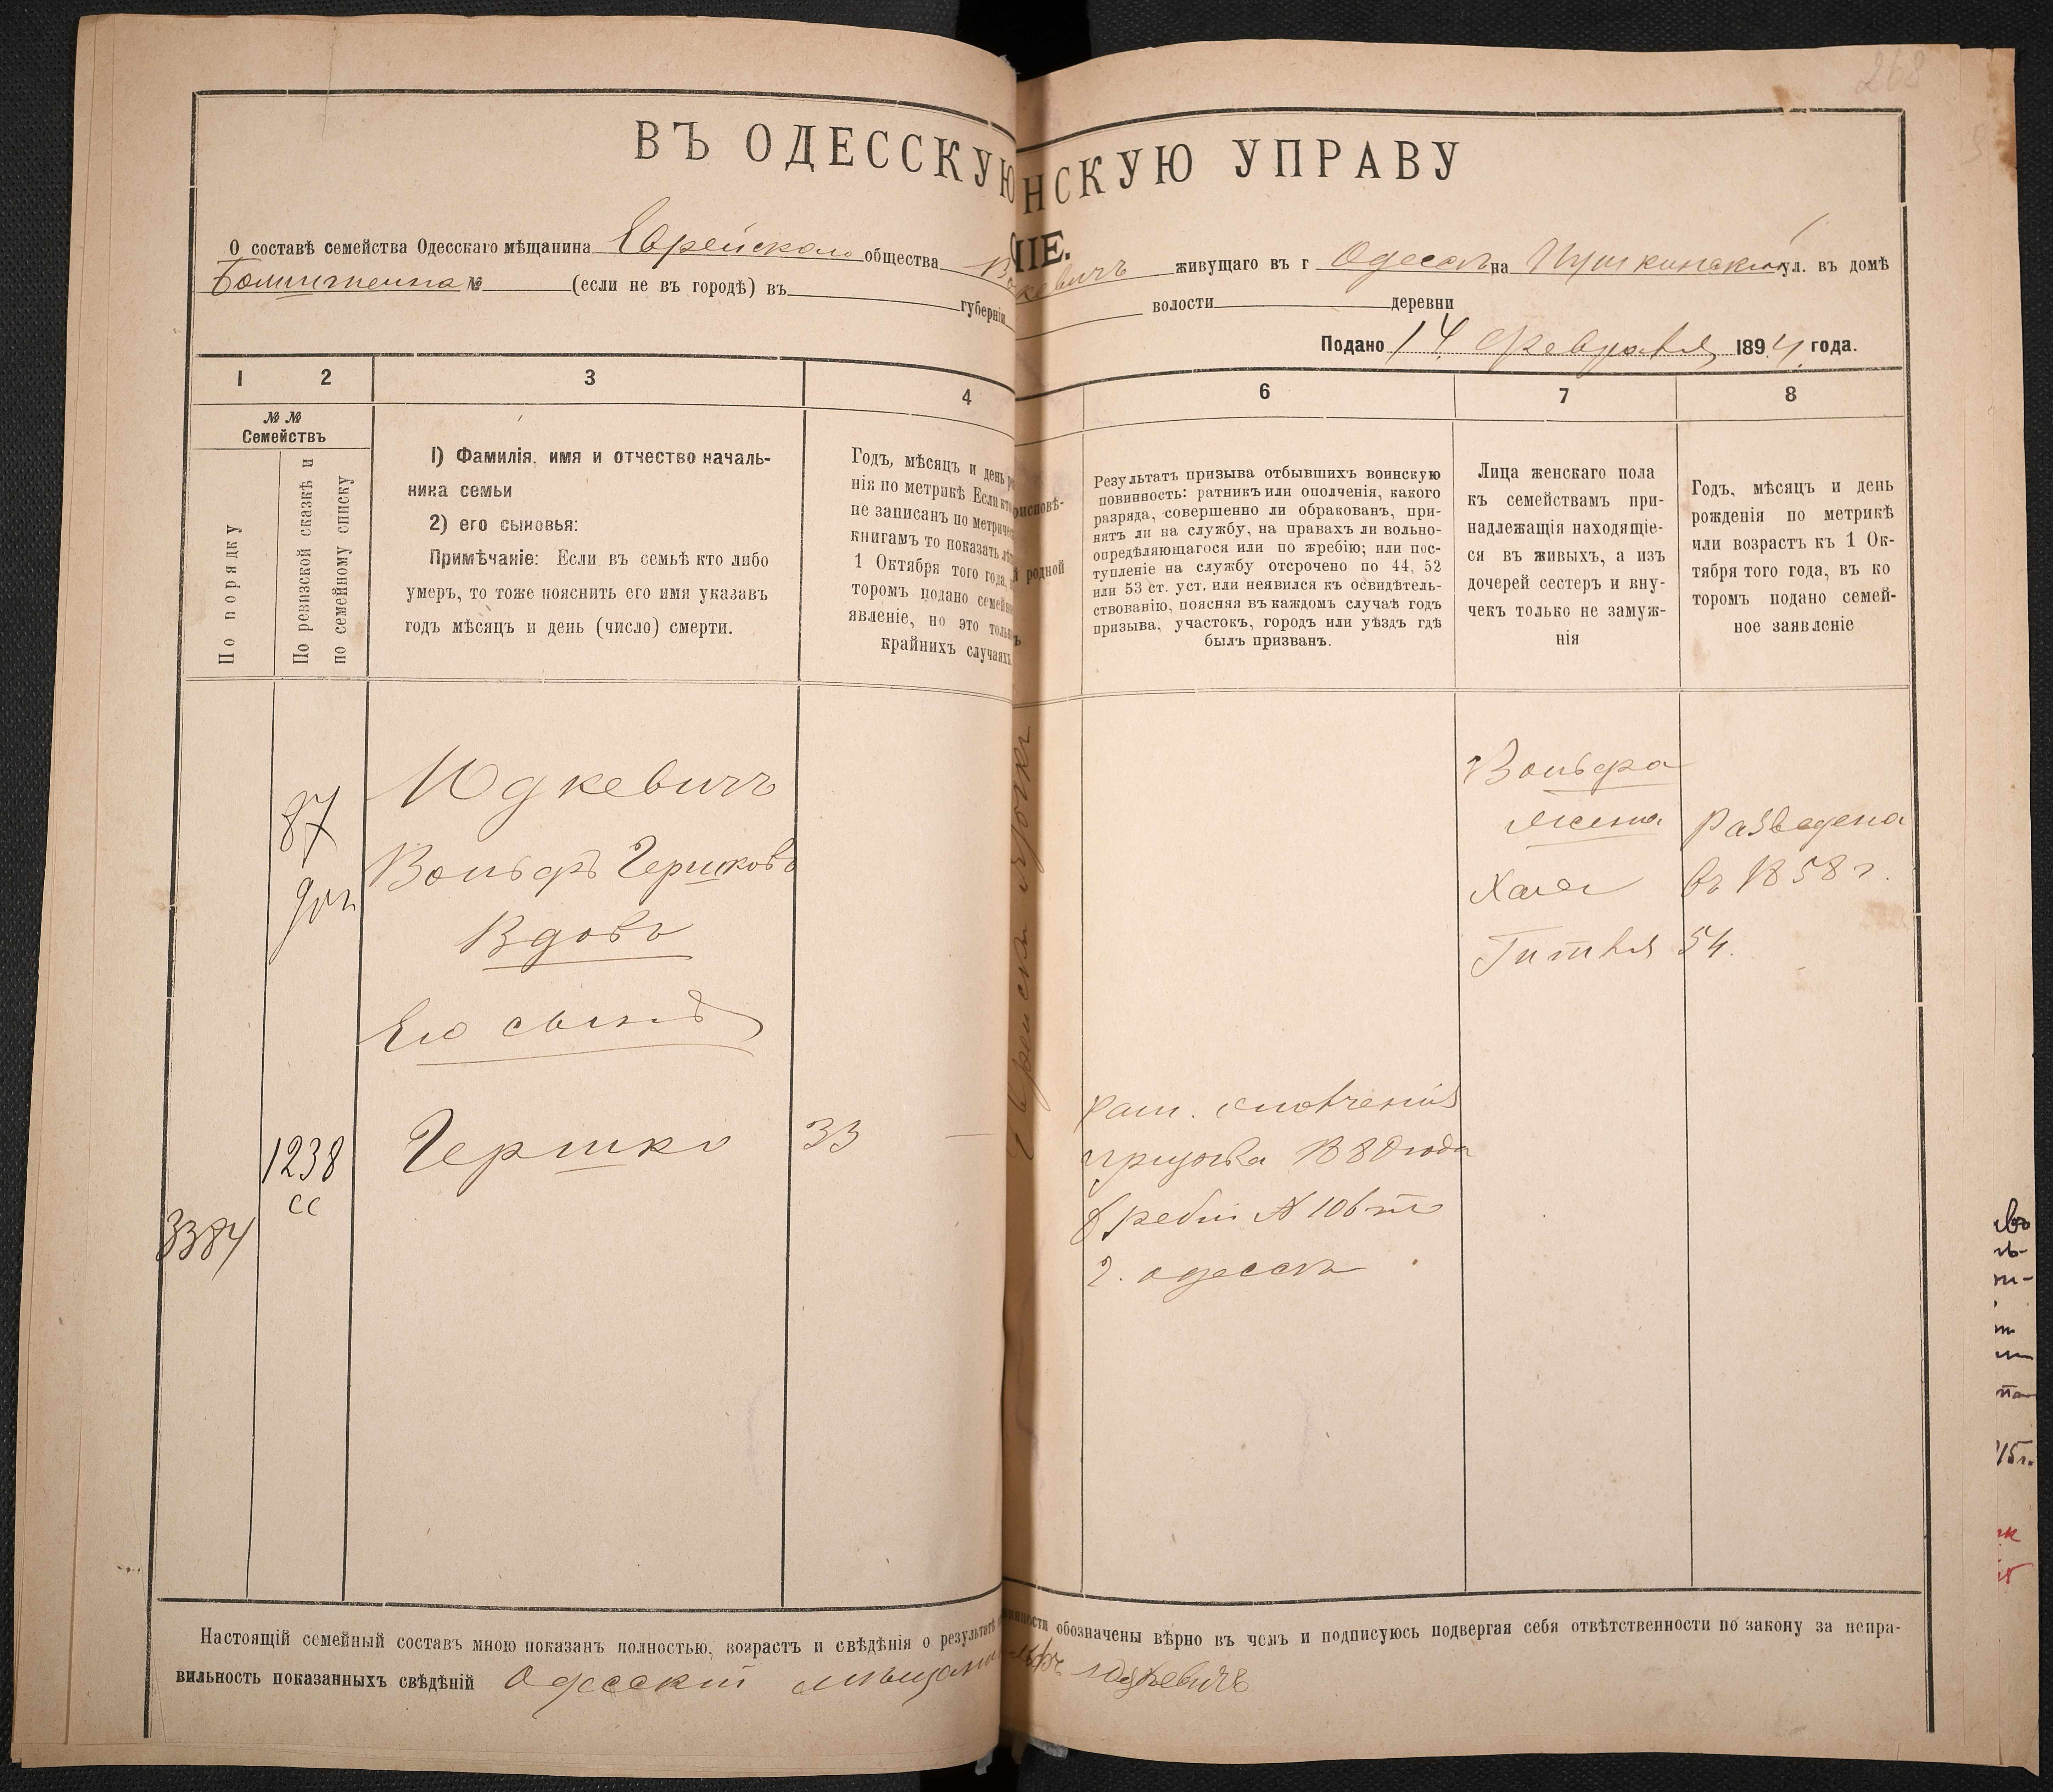 268
ВЪ ОДЕССКУЮ
НСКУЮ УПРАВУ
ІІЕ.
О составѣ семейства Одесскаго мѣщанина Еврейскаго общества
кевичъ живущаго въ г Одессѣ на Пушкинской ул. въ домѣ
№ (если не въ городѣ) въ губерніи
волости деревни
Подано 14 февраля 1894 года.
1 2 3 4
6 7 8
№ №
Семействъ
По порядку
По ревизской сказкѣ и
по семейному списку
1) Фамилія, имя и отчество началь-
ника семьи
2) его сыновья:
Примѣчаніе: Если въ семьѣ кто либо
умеръ, то тоже пояснить его имя указавъ
годъ мѣсяцъ и день (число) смерти.
Годъ, мѣсяцъ и день
нія по метрикѣ Если кто
не записанъ по метричес
книгамъ то показать лѣт
1 Октября того года,
торомъ подано семейн
явленіе, но это только
крайнихъ случаяхъ
рисповѣ-
родной
Результатъ призыва отбывшихъ воинскую
повинность: ратникъ или ополченія, какого
разряда, совершенно ли обракованъ, при-
нятъ ли на службу, на правахъ ли вольно-
опредѣляющагося или по жребію; или пос-
тупленіе на службу отсрочено по 44, 52
или 53 ст. уст. или неявился къ освидѣтель-
ствованію, поясняя въ каждомъ случаѣ годъ
призыва, участокъ, городъ или уѣздъ гдѣ
былъ призванъ.
Лица женскаго пола
къ семействамъ при-
надлежащія находящіе-
ся въ живыхъ, а изъ
дочерей сестеръ и вну-
чекъ только не замуж-
нія
Годъ, мѣсяцъ и день
рожденія по метрикѣ
или возрастъ къ 1 Ок-
тября того года, въ ко
торомъ подано семей-
ное заявленіе
87
доп
Юдкевичъ
Вольфъ Гершковъ
Вдовъ
Его сынъ
1238
сс
Гершко
33
3384
рат. ополченія
призыва 1880 года
жребій № 106
г. Одесса
Вольфа
жена
Хая
Гитвля
Разведена
въ 1858 г.
54.
Настоящій семейный составъ мною показанъ полностью, возрастъ и свѣдѣнія о результатѣ
инности обозначены вѣрно въ чемъ и подписуюсь подвергая себя отвѣтственности по закону за непра-
вильность показанныхъ свѣдѣній Одесскій мѣщанинъ
Юдкевичъ